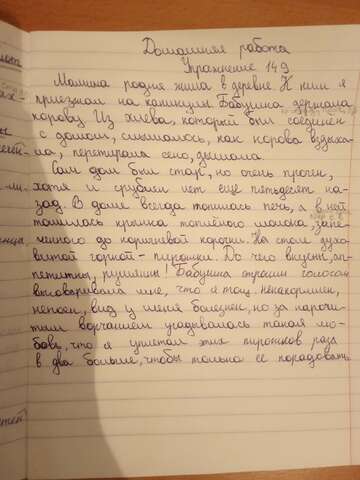 Домашняя работа
Упражнение 149
Мамина родня жила в деревне. К ним я
приезжал на каникулы. Бабушка держала
корову. Из хлева, который был соединен
с домом, слышалось, как корова вздыха-
ла, перетирала сено, дышала.
Сам дом был стар, но очень прочен,
хотя и срублен лет ещё пятьдесят на-
зад. В доме всегда топилась печь, а в ней
томилась крынка топлёного молока, запе-
ченного до коричневой корочки. На столе духо-
витой горкой - пирожки. До чего вкусны, ап-
петитны, румяны! Бабушка строгим голосом
выговаривала мне, что я тощ, ненакормлен,
непоен, вид у меня болезнен, но за нарочи-
тым ворчанием угадывалась такая лю-
бовь, что я уплетал этих пирожков раза
в два больше, чтобы только её порадовать.